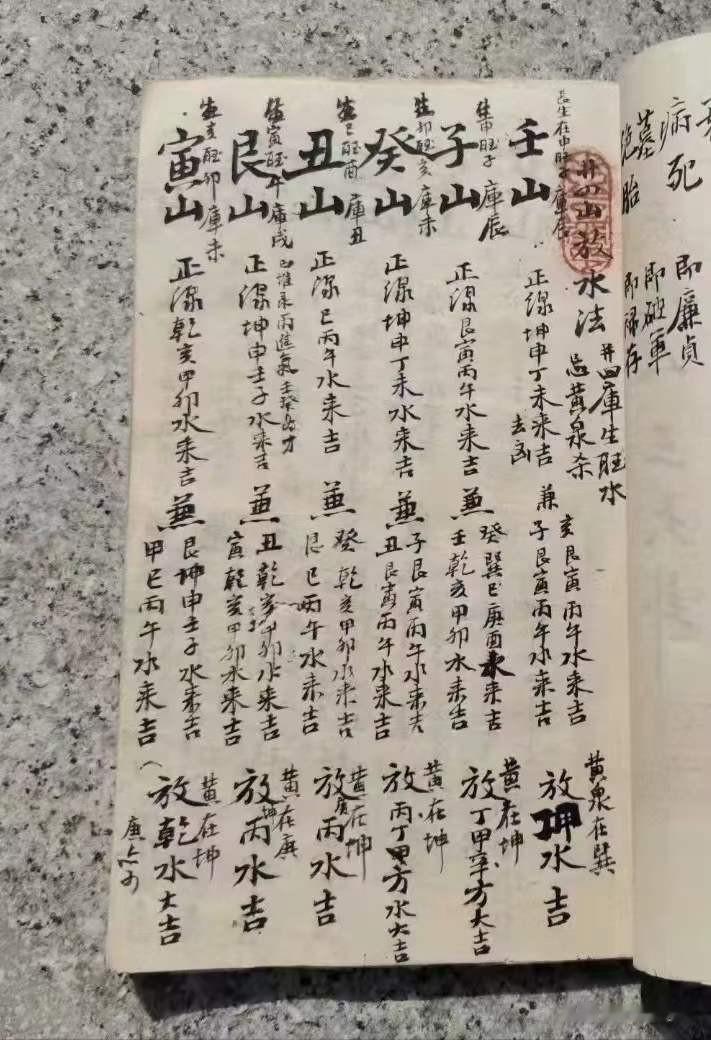 病死 即廉貞
墓 即破軍
胎 即祿存
廿四山放水法
廿四庫生旺水
忌黃泉杀
長生在申旺子庫辰
壬山
正線坤申丁未來吉
去凶
兼
亥艮寅丙午水來吉
子艮寅丙午水來吉
黃泉在巽
放坤水吉
生申旺子庫辰
子山
正線艮寅丙午水來吉
兼
癸巽巳庚酉水來吉
壬乾亥甲卯水來吉
黃在坤
放丁甲辛方大吉
生卯旺亥庫未
癸山
正線坤申丁未水來吉
兼
子艮寅丙午水來吉
丑艮寅丙午水來吉
黃在坤
放丙丁甲方水大吉
生巳旺酉庫丑
丑山
正線巳丙午水來吉
兼
癸乾亥甲卯水來吉
艮巳丙午水來吉
黃在坤
放丙水吉
生寅旺午庫戌
艮山
正線坤申壬子水來吉
兼
丑乾亥甲卯水來吉
寅乾亥甲卯水來吉
黃在庚
放丙水吉
生亥旺卯庫未
寅山
正線乾亥甲卯水來吉
兼
艮坤申壬子水來吉
甲巳丙午水來吉
黃在坤
放乾水大吉